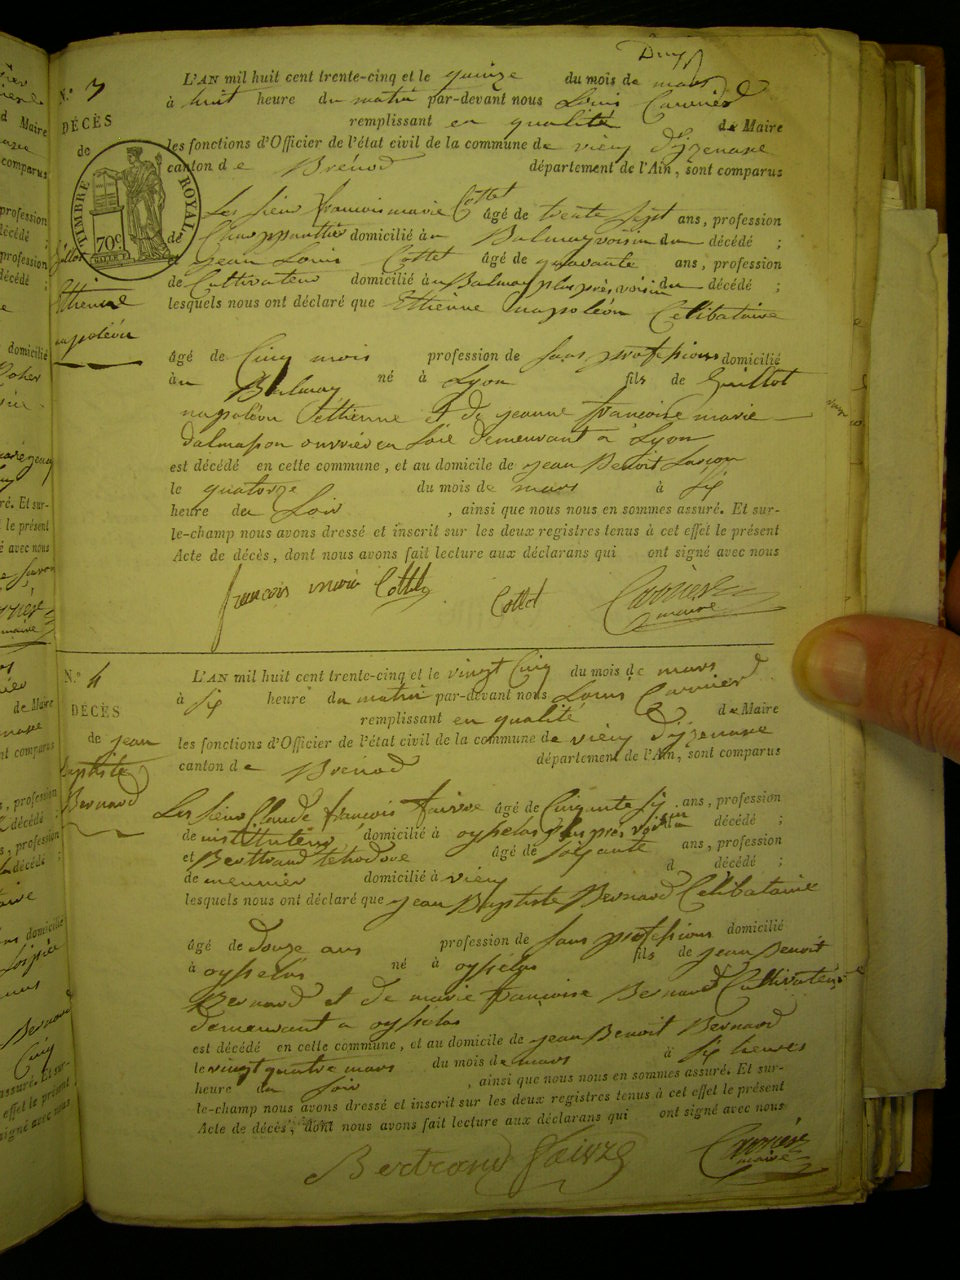 N.º 3
DÉCÈS
de
TIMBRE ROYAL
70 c.
Guillot
Ettienne
napoléon
L'AN mil huit cent trente-cinq et le quinze du mois de mars
à huit heure du matin par-devant nous Louis Carrier
remplissant en qualité de Maire
les fonctions d'Officier de l'état civil de la commune de vieu d'yzenave
canton de Brénod département de l'Ain, sont comparus
Les sieur françois marie Cottet âgé de trente sept ans, profession
de Charppantier domicilié à au Balmay voisin du décédé ;
et jean Louis Cottet âgé de quarante ans, profession
de Cultivateur domicilié à au Balmay plus près voisin du décédé ;
lesquels nous ont déclaré que Ettienne napoléon Célibataire
âgé de Cinq mois profession de sans profession domicilié
au Balmay né à Lyon fils de Guillot
napoléon Ettienne et de jeanne françoise marie
dalmason ouvrier en soie demeurant a Lyon
est décédé en cette commune, et au domicile de jean Benoit
le quatorze du mois de mars à six
heure du soir , ainsi que nous nous en sommes assuré. Et sur-
le-champ nous avons dressé et inscrit sur les deux registres tenus à cet effet le présent
Acte de décès, dont nous avons fait lecture aux déclarans qui ont signé avec nous
françois marie Cottet Cottet Carrier
maire
N.º 4
DÉCÈS
de jean
Baptiste
Bernard
L'AN mil huit cent trente-cinq et le vingt Cinq du mois de mars
à six heure du matin par-devant nous Louis Carrier
remplissant en qualité de Maire
les fonctions d'Officier de l'état civil de la commune de vieu d'yzenave
canton de Brénod département de l'Ain, sont comparus
Les sieur Claude françois faivre âgé de Cinquante six ans, profession
de instituteur domicilié à oysselas plus près voisin du décédé ;
et Berttrand téhodore âgé de soixante ans, profession
de meunier domicilié à vieu d décédé ;
lesquels nous ont déclaré que jean Baptiste Bernard Célibataire
âgé de douze ans profession de sans profession domicilié
à oysselas né à oysselas fils de jean Benoit
Bernard et de marie françoise Bernard Cultivateur
demeurant a oysselas
est décédé en cette commune, et au domicile de jean Benoit Bernard
le vingt quatre mars du mois de mars à six heures
heure du soir , ainsi que nous nous en sommes assuré. Et sur-
le-champ nous avons dressé et inscrit sur les deux registres tenus à cet effet le présent
Acte de décès, dont nous avons fait lecture aux déclarans qui ont signé avec nous
Bertrand faivre Carrier
maire